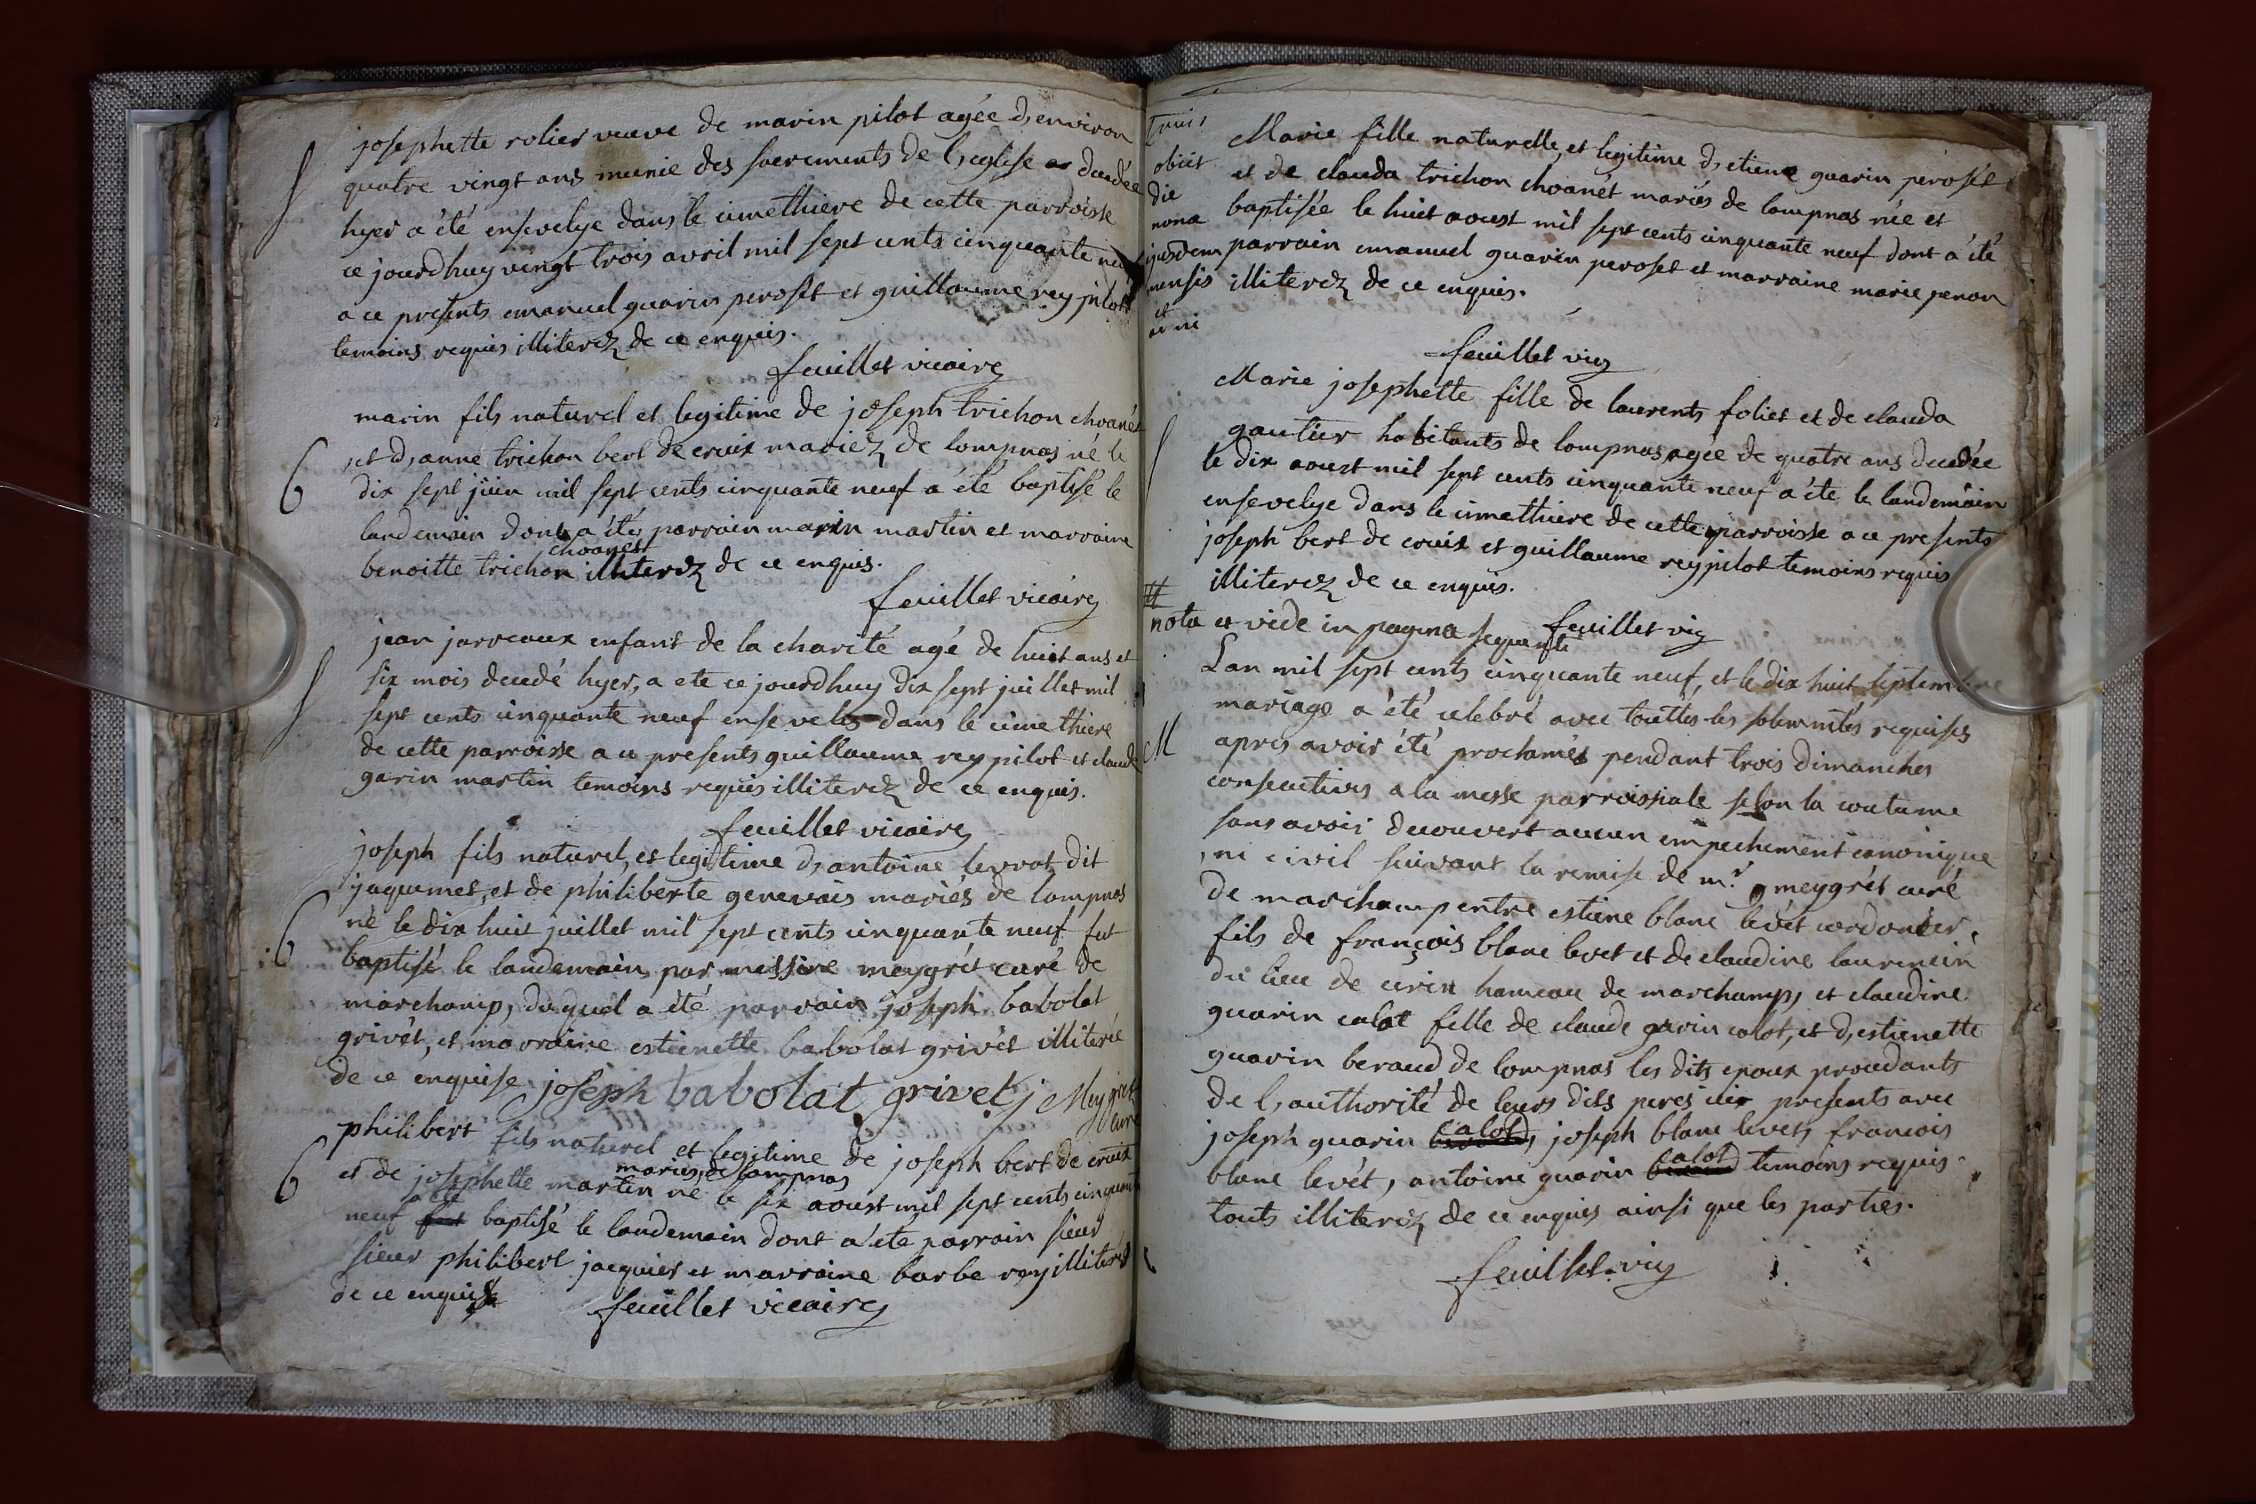 josephette rolier veuve de marin pilot agée d,environ
quatre vingt ans munie des sacrements de l,eglise decedée
hyer a été ensevelye dans le cimethiere de cette parroisse
ce jourdhuy vingt trois avril mil sept cents cinquante neuf
a ce presents emanuel guarin peroset et guillaume rey pilot
temoins requis illiterez de ce enquis.
feuillet vicaire
marin fils naturel et legitime de joseph trichon choanét
et d,anne trichon bert de croix mariez de lompnas né le
6
dix sept juin mil sept cents cinquante neuf a été baptisé le
landemain dont a été parrain marin martin et marraine
choanet
benoitte trichon illiterez de ce enquis.
feuillet vicaire
jean jarreaux enfant de la charité agé de huit ans et
six mois decedé hyer, a ete ce jourdhuy dix sept juillet mil
sept cents cinquante neuf ensevely dans le cimethiere
de cette parroisse a ce presents guillaume rey pilot et claude
garin martin temoins requis illiterez de ce enquis.
feuillet vicaire
joseph fils naturel, et legitime d,antoine levrat dit
jaquemet, et de philiberte genevais mariés de lompnas
6
né le dix huit juillet mil sept cents cinquante neuf fut
baptisé le landemain par messire meygrét curé de
marchamp, duquel a été parrain joseph babolat
grivét, et marraine estienette babolat grivét illiterée
de ce enquise joseph babolat grivet j Meygret
curé
philibert fils naturel et legitime de joseph bert de croix
6
mariés de lompnas
et de josephette martin né le six aoust mil sept cents cinquante
a été
neuf fut baptisé le landemain dont a été parrain sieur
sieur philibert jacquier et marraine barbe rey illiterés
de ce enquis
feuillet vicaire
obiit
die
nona
ejusdem
mensis
et
Marie fille naturelle, et legitime d,etiene guarin peroset
et de clauda trichon choanét mariés de lompnas née et
baptisée le huit aoust mil sept cents cinquante neuf dont a été
parrain emanuel guarin peroset et marraine marie penon
illiterez de ce enquis.
feuillet vic
Marie josephette fille de laurents foliet et de clauda
gautier habitants de lompnas, agée de quatre ans decedée
le dix aoust mil sept cents cinquante neuf a été le landemain
ensevelye dans le cimethiere de cette parroisse a ce presents
joseph bert de croix et guillaume rey pilot temoins requis
illiterez de ce enquis.
feuillet vic
nota et vide in pagina sequenti
Lan mil sept cents cinquante neuf, et le dix huit septembre
mariage a été celebré avec touttes les solemnités requises
M
apres avoir été proclamés pendant trois dimanches
consecutives a la messe parroissiale selon la coutume
sans avoir decouvert aucun empechement canonique
ni civil suivant la remise de mr. meygrét curé
de marchamp entre estiene blanc levét cordonier,
fils de françois blanc levet et de claudine laurencin
du lieu de cirin hameau de marchamp, et claudine
guarin calot fille de claude garin calot, et d,estienette
guarin beraud de lompnas les dits epoux procedants
de l,authorité de leurs dits peres icy presents avec
calot
joseph guarin beraud, joseph blanc levet, francois
calot
blanc levét, antoine guarin beraud temoins requis
touts illiterez de ce enquis ainsi que les parties.
feuillet vic